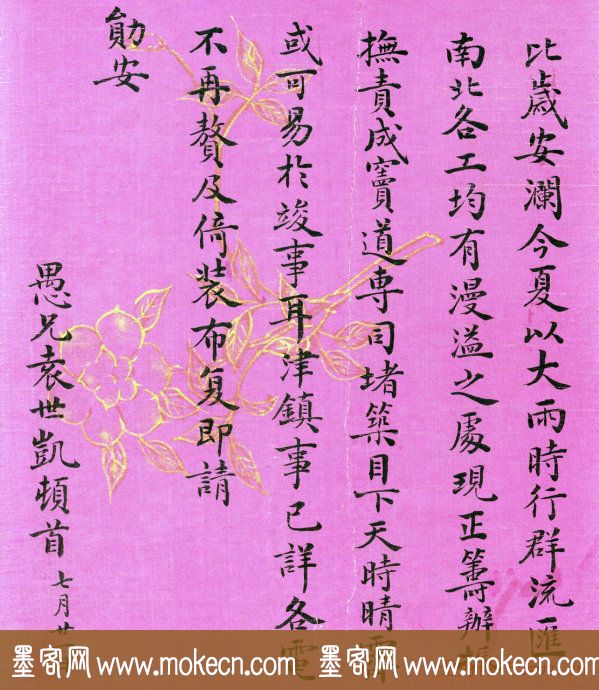 比歲安瀾今夏以大雨時行群流匯
南北各工均有漫溢之處現正籌辦
撫責成竇道專司堵築目下天時晴霽
或可易於竣事耳津鎮事已詳各電
不再贅及倚裝布复即請
勛安
愚兄袁世凱頓首 七月廿
墨客网 www.mokecn.com 墨客网 www.mokecn.com